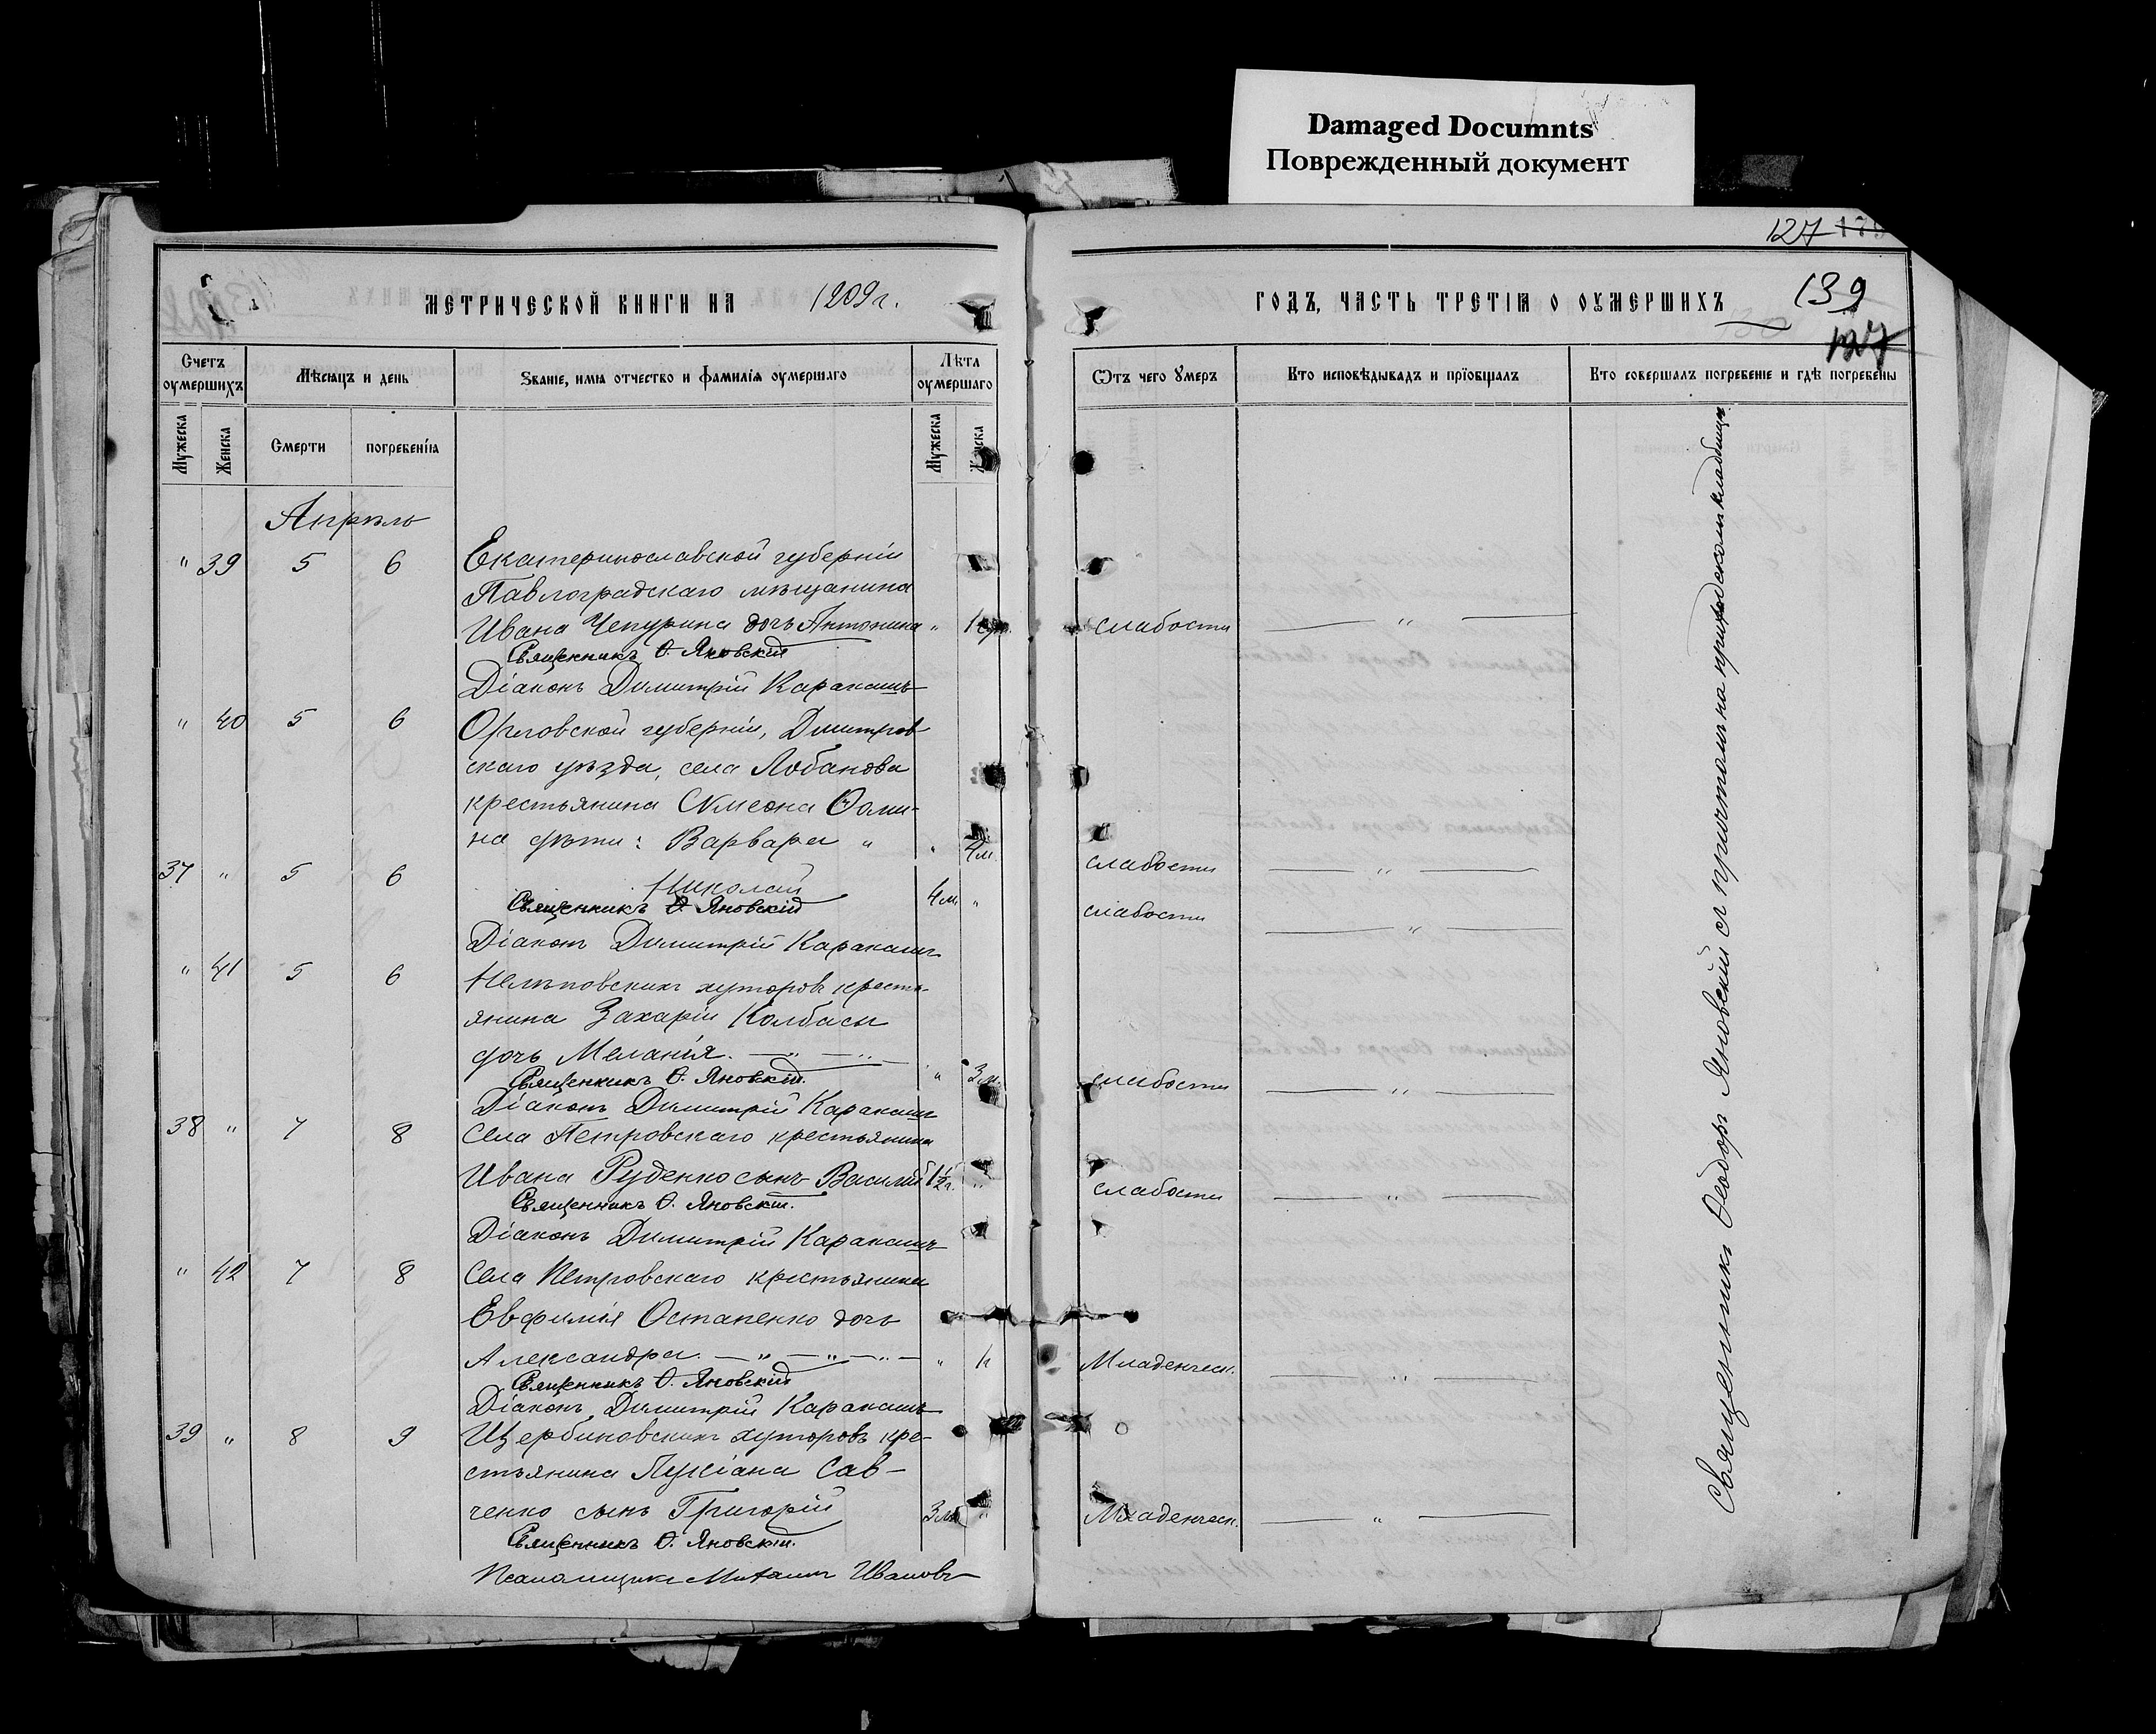 Damaged Documnts
Поврежденный документ
127 175
139
127
МЕТРИЧЕСКОЙ КНИГИ НА 1909 г.
ГОДЪ, ЧАСТЬ ТРЕТІЯ О ОУМЕРШИХЪ
Счетъ оумершихъ
Мѣсяцъ и день
Званіе, имя отчество и фамилія оумершаго
Лѣта оумершаго
Ѿтъ чего умеръ
Кто исповѣдывалъ и пріобщалъ
Кто совершалъ погребеніе и гдѣ погребены
Мужеска
Женска
Смерти
погребенія
Мужеска
Женска
Апрѣль
" 39 5 6 Екатеринославской губерніи
Павлоградскаго мѣщанина
Ивана Чепурина дочь Антонина " слабости — " —
Священникъ Ѳ. Яновскій
Діаконъ Димитрій Каракашъ
" 40 5 6 Орловской губерніи, Дмитров
скаго уѣзда, села Лобанова
крестьянина Сѵмеона Ѳоми-
на дѣти: Варвара " " 4 м. слабости — " —
37 " 5 6 Николай 4 м. " слабости — " —
Священникъ Ѳ. Яновскій
Діаконъ Димитрій Каракашъ
" 41 5 6 Нелѣповскихъ хуторовъ кресть-
янина Захаріи Колбасы
дочь Меланія. — " — " — " 3 м. слабости — " —
Священникъ Ѳ. Яновскій.
Діаконъ Димитрій Каракашъ
38 " 7 8 Села Петровскаго крестьянина
Ивана Руденко сынъ Василій 1½ г. " слабости — " —
Священникъ Ѳ. Яновскій.
Діаконъ Димитрій Каракашъ
" 42 7 8 Села Петровскаго крестьянина
Евфимія Остапенко дочь
Александра. — " — " — " — " Младенческ. — " —
Священникъ Ѳ. Яновскій
Діаконъ Димитрій Каракашъ
39 " 8 9 Щербиновскихъ хуторовъ кре-
стьянина Лукіана Сав-
ченко сынъ Григорій 3 м. " Младенческ. — " —
Священникъ Ѳ. Яновскій.
Псаломщикъ Михаилъ Ивановъ
Священникъ Ѳеодоръ Яновскій съ причтомъ на приходскомъ кладбищѣ